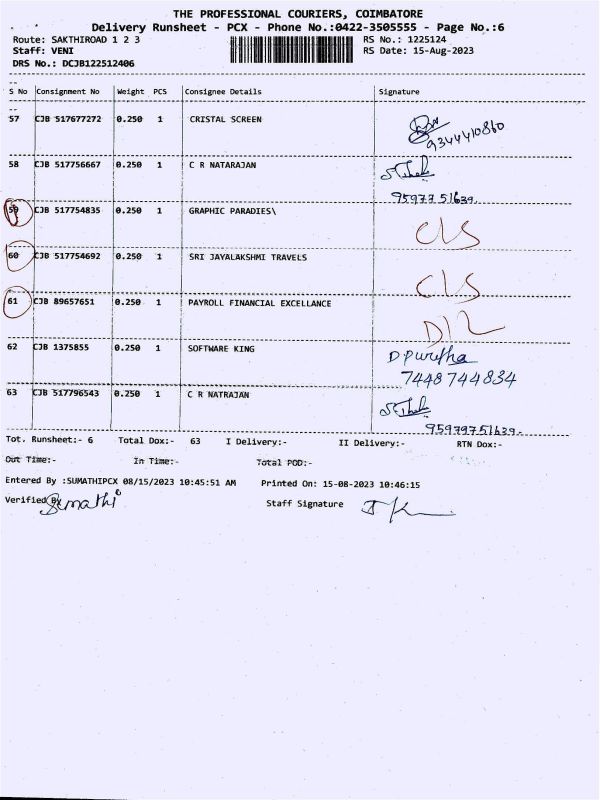 THE PROFESSIONAL COURIERS, COIMBATORE
Delivery Runsheet - PCX - Phone No.:0422-3505555 - Page No.:6
Route: SAKTHIROAD 1 2 3 RS No.: 1225124
Staff: VENI RS Date: 15-Aug-2023
DRS No.: DCJB122512406
S No Consignment No Weight PCS Consignee Details Signature
57 CJB 517677272 0.250 1 CRISTAL SCREEN
9344410860
58 CJB 517756667 0.250 1 C R NATARAJAN
9597751639.
59 CJB 517754835 0.250 1 GRAPHIC PARADIES\ CLS
60 CJB 517754692 0.250 1 SRI JAYALAKSHMI TRAVELS CLS
61 CJB 89657651 0.250 1 PAYROLL FINANCIAL EXCELLANCE D/L
62 CJB 1375855 0.250 1 SOFTWARE KING
7448744834
63 CJB 517796543 0.250 1 C R NATRAJAN
Tot. Runsheet:- 6 Total Dox:- 63 I Delivery:- II Delivery:- RTN Dox:-
Out Time:- In Time:- Total POD:-
Entered By :SUMATHIPCX 08/15/2023 10:45:51 AM Printed On: 15-08-2023 10:46:15
Verified By Sumathi Staff Signature